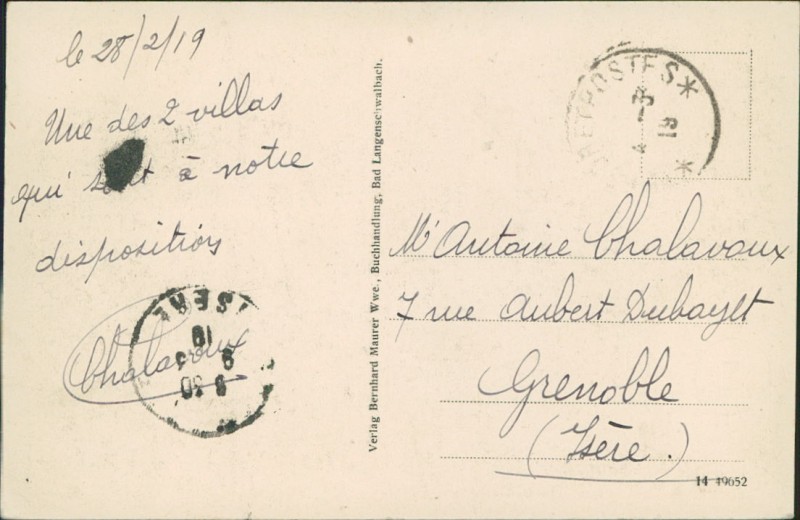 le 28/2/19
Une des 2 villas
qui sont à notre
disposition
Chalavoux
ISERE
Verlag Bernhard Maurer Wwe., Buchhandlung, Bad Langenschwalbach.
POSTES
19
Mr Antoine Chalavoux
7 rue Aubert Dubayet
Grenoble
(Isère.)
14 49652